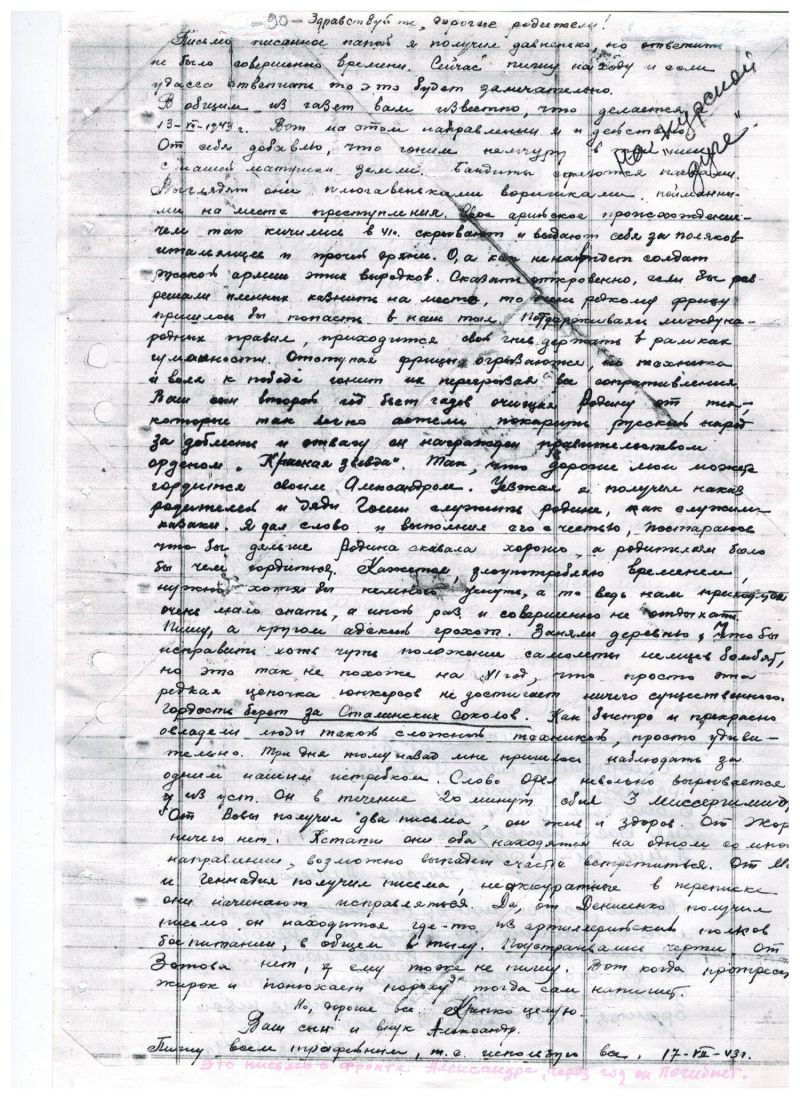 -90- Здравствуйте, дорогие родители!
Письмо писанное папой я получил давненько, но ответить
не было совершенно времени. Сейчас пишу на ходу и если
удасса отвечать то это будет замечательно.
В общим из газет вам известно, что делается
13-VII-1943 г. Вот на этом направлении я и действую
От себя добавлю, что гоним немчуру в
с нашей матушки земли. Бандиты сдаются пачками.
на курской дуге"
Выглядят они плюгавенькими воришками, пойманны-
ми на месте преступления. Свое арийское происхождение
чем так кичились в 41 г. скрывают и выдают себя за поляков
итальянцев и прочей дряни. О, а как ненавидит солдат
русской армии этих выродков. Сказать откровенно, если бы раз-
решали пленных казнить на месте, то очень редкому фрицу
пришлось бы попасть в наш тыл. Поддерживая междуна-
родных правил, приходится свой гнев держать в рамках
гуманности. Отступая фрицы огрываются, но техника
и воля к победе гонит их перегрызая все сопративления
Ваш сын второй год бьет гадов очищая Родину от тех,
которые так легко хотели покорить русский народ
за доблесть и отвагу он награжден правительством
орденом „Красная звезда". Так, что дорогие мои можете
гордится своим Александром. Уезжая я получил наказ
родителей и дяди Гоши служить родине, как служили
казаки. Я дал слово и выполнил его с честью, постараюсь
что бы дальше Родина сказала хорошо, а родителям было
бы чем гордиться. Кажется, злоупотребляю временем,
нужно хотя бы немного уснуть, а то ведь нам приходится
очень мало спать, а иной раз и совершенно не отдыхать.
Пишу, а кругом адский грохот. Заняли деревню, Чтобы
исправить хоть чуть положение самолеты немцев бомбят,
но это так не похоже на 41 год, что просто эта
редкая цепочка юнкерсов не достигает ничего существенного.
Гордость берет за Сталинских соколов. Как быстро и прекрасно
овладели люди такой сложной техникой, просто удиви-
тельно. Три дня тому назад мне пришлось наблюдать за
одним нашим истребком. Слово Орел невольно вырывается
у из уст. Он в течение 20 минут сбил 3 Миссершмид
От Вовы получил два письма, он жив и здоров. От Жор
ничего нет. Кстати они оба находятся на одном со мно
направлении, возможно выпадет счастье встретиться. От
и Геннадия получил письма, неаккуратные в переписке
они начинают исправляться. Да, от Денисенко получил
письмо он находится где-то из артиллерийских полков
боепитании, в общем в тылу. Поустраивались черти От
Зотова нет, я ему тоже не пишу. Вот когда протрясет
жирок и понюхает пороху, тогда сам напишет.
Но, дорогие все. Крепко целую.
Ваш сын и внук Александр.
Пишу всем трафейним, т.е. использую все, 17-VII-43г.
Это письмо с фронта Александра, через год он погибнет.